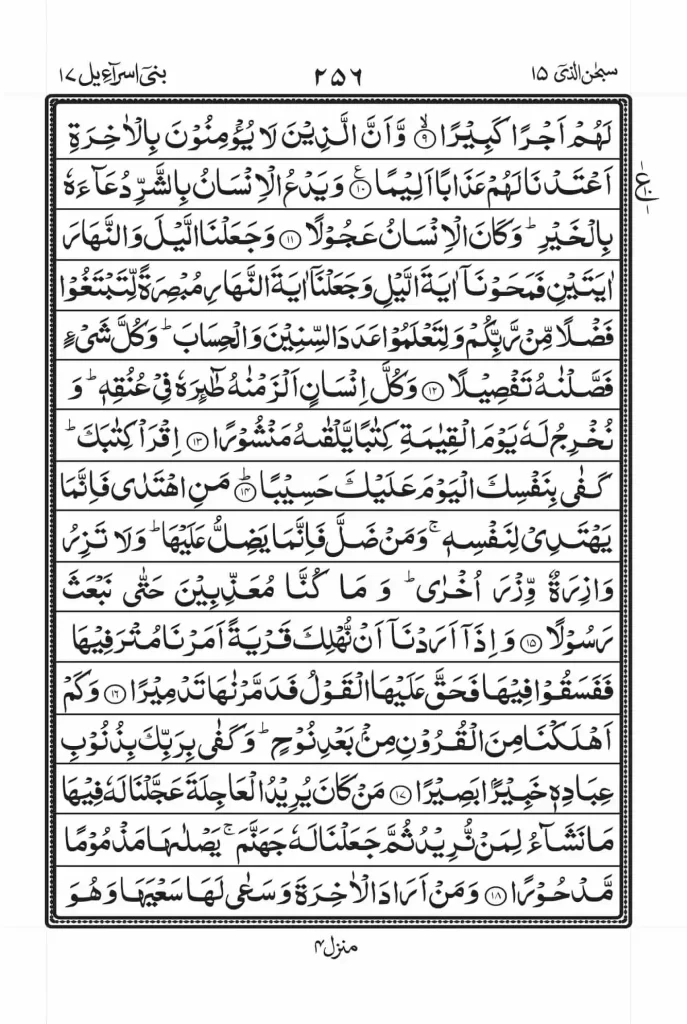 سبحٰن الذیٓ ۱۵
۲۵۶
بنیٓ اسرآءیل ۱۷
لَهُمْ اَجْرًا كَبِيْرًا ۙ‏﴿۹﴾ وَّاَنَّ الَّذِيْنَ لَا يُؤْمِنُوْنَ بِالْاٰخِرَةِ
اَعْتَدْنَا لَهُمْ عَذَابًا اَلِيْمًا ﴿۱۰﴾ ع وَيَدْعُ الْاِنْسَانُ بِالشَّرِّ دُعَآءَهٗ
بِالْخَيْرِ ؕ وَكَانَ الْاِنْسَانُ عَجُوْلًا ﴿۱۱﴾ وَجَعَلْنَا الَّيْلَ وَالنَّهَارَ
اٰيَتَيْنِ فَمَحَوْنَاۤ اٰيَةَ الَّيْلِ وَجَعَلْنَاۤ اٰيَةَ النَّهَارِ مُبْصِرَةً لِّتَبْتَغُوْا
فَضْلًا مِّنْ رَّبِّكُمْ وَلِتَعْلَمُوْا عَدَدَ السِّنِيْنَ وَالْحِسَابَ ؕ وَكُلَّ شَىْءٍ
فَصَّلْنٰهُ تَفْصِيْلًا ﴿۱۲﴾ وَكُلَّ اِنْسَانٍ اَلْزَمْنٰهُ طٰٓئِرَهٗ فِىْ عُنُقِهٖ ؕ وَ
نُخْرِجُ لَهٗ يَوْمَ الْقِيٰمَةِ كِتٰبًا يَّلْقٰٮهُ مَنْشُوْرًا ﴿۱۳﴾ اِقْرَاْ كِتٰبَكَ ؕ
كَفٰى بِنَفْسِكَ الْيَوْمَ عَلَيْكَ حَسِيْبًا ؕ﴿۱۴﴾ مَنِ اهْتَدٰى فَاِنَّمَا
يَهْتَدِىْ لِنَفْسِهٖ ۚ وَمَنْ ضَلَّ فَاِنَّمَا يَضِلُّ عَلَيْهَا ؕ وَلَا تَزِرُ
وَازِرَةٌ وِّزْرَ اُخْرٰى ؕ وَ مَا كُنَّا مُعَذِّبِيْنَ حَتّٰى نَبْعَثَ
رَسُوْلًا ﴿۱۵﴾ وَاِذَاۤ اَرَدْنَاۤ اَنْ نُّهْلِكَ قَرْيَةً اَمَرْنَا مُتْرَفِيْهَا
فَفَسَقُوْا فِيْهَا فَحَقَّ عَلَيْهَا الْقَوْلُ فَدَمَّرْنٰهَا تَدْمِيْرًا ﴿۱۶﴾ وَكَمْ
اَهْلَكْنَا مِنَ الْقُرُوْنِ مِنْۢ بَعْدِ نُوْحٍ ؕ وَكَفٰى بِرَبِّكَ بِذُنُوْبِ
عِبَادِهٖ خَبِيْرًۢا بَصِيْرًا ﴿۱۷﴾ مَنْ كَانَ يُرِيْدُ الْعَاجِلَةَ عَجَّلْنَا لَهٗ فِيْهَا
مَا نَشَآءُ لِمَنْ نُّرِيْدُ ثُمَّ جَعَلْنَا لَهٗ جَهَنَّمَ ۚ يَصْلٰٮهَا مَذْمُوْمًا
مَّدْحُوْرًا ﴿۱۸﴾ وَمَنْ اَرَادَ الْاٰخِرَةَ وَسَعٰى لَهَا سَعْيَهَا وَهُوَ
منزل ۴